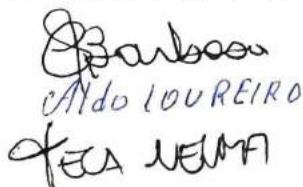 Barbosa
Aldo LOUREIRO
TECA NELMA